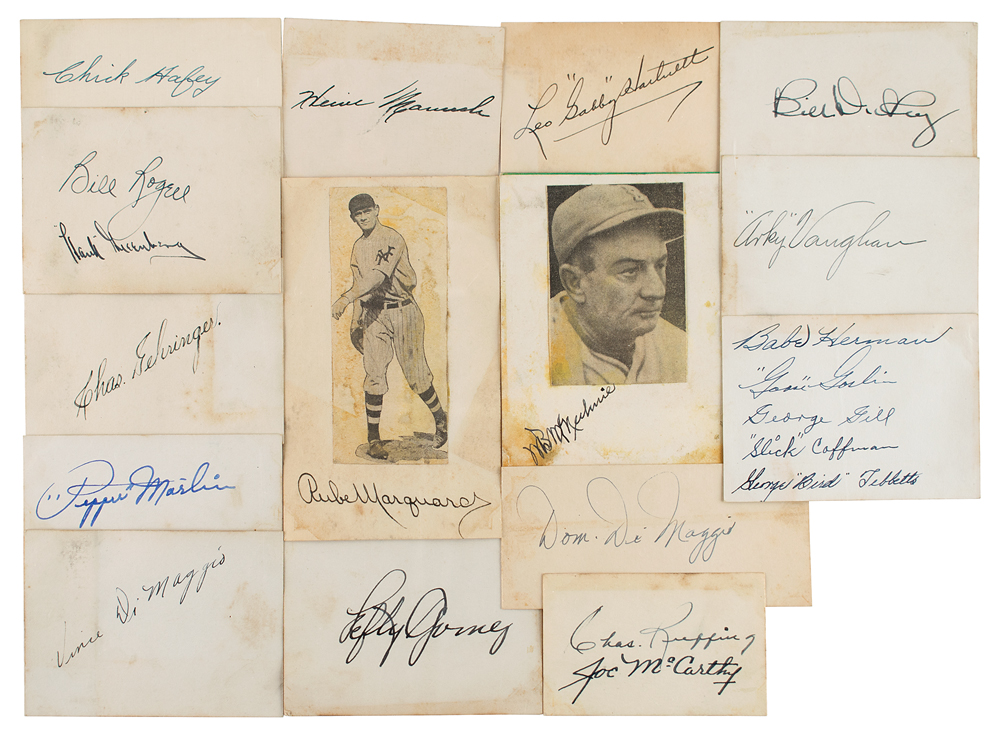 Chick Hafey
Bill Rogell
"Hank" Greenberg
Chas. Gehringer.
"Pepper" Martin
Vince Di Maggio
Heine Manush
NY
Rube Marquard
Lefty Gomez
Leo "Gabby" Hartnett
B
W B McKechnie
Dom. Di Maggio
Chas. Ruffing
Joe McCarthy
Bill Dickey
"Arky" Vaughan
Babe Herman
"Goose" Goslin
George Gill
"Slick" Coffman
George "Bird" Tebbetts